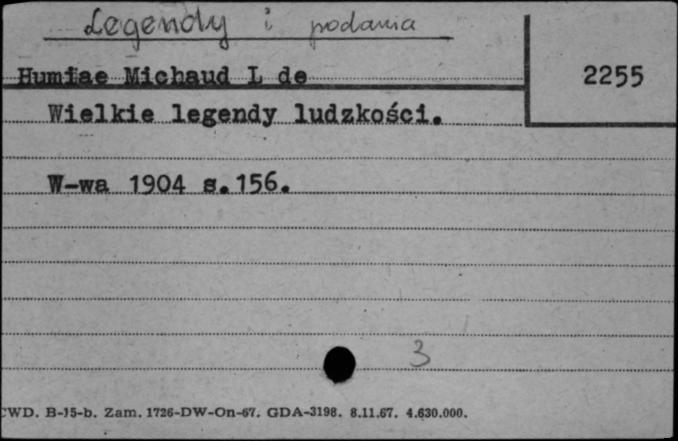 Legendy i podania
Humiae Michaud L de
2255
Wielkie legendy ludzkości.
W-wa 1904 s.156.
3
CWD. B-15-b. Zam. 1726-DW-On-67. GDA-3198. 8.11.67. 4.630.000.